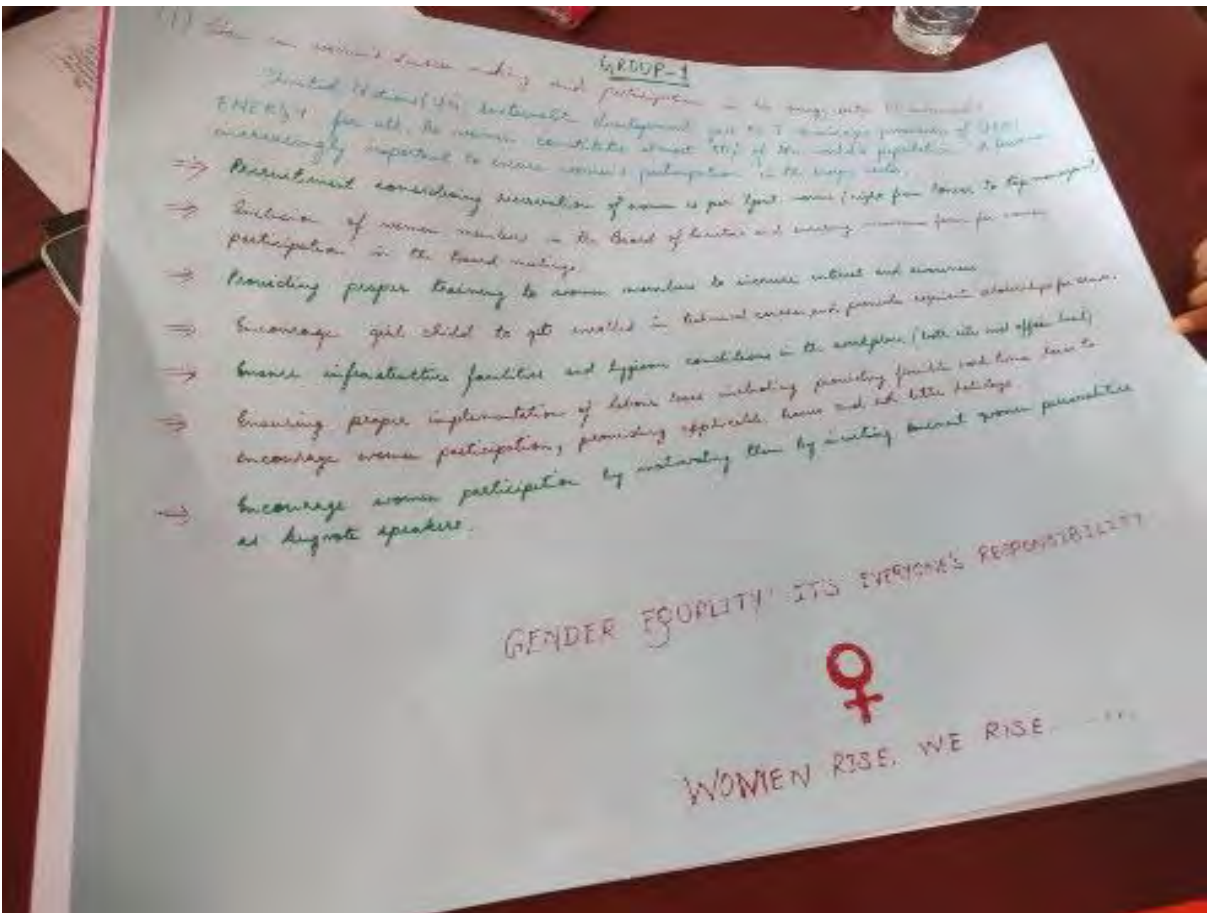 GROUP-1
(1) How can women's decision making and participation in the energy sector be
United Nations (UN) sustainable development goal no 7 envisages provision of
ENERGY for all. As women constitute almost 50% of the world's population it becomes
increasingly important to ensure women's participation in the energy sector.
⇒ Recruitment considering reservation of women as per Govt. norms (right from lower to top management)
⇒ Inclusion of women members in the Board of Directors and ensuring for women
participation in the Board meetings.
⇒ Providing proper training to women members to increase interest and awareness
⇒ Encourage girl child to get enrolled in technical courses and provide requisite scholarships for same.
⇒ Ensure infrastructure facilities and hygiene conditions in the workplace (both site and office level)
⇒ Ensuring proper implementation of labour laws including providing flexible work hours to
encourage women participation, providing applicable leaves and holidays.
⇒ Encourage women participation by motivating them by inviting eminent women personalities
as keynote speakers.
GENDER EQUALITY: ITS EVERYONE'S RESPONSIBILITY
WOMEN RISE, WE RISE.......